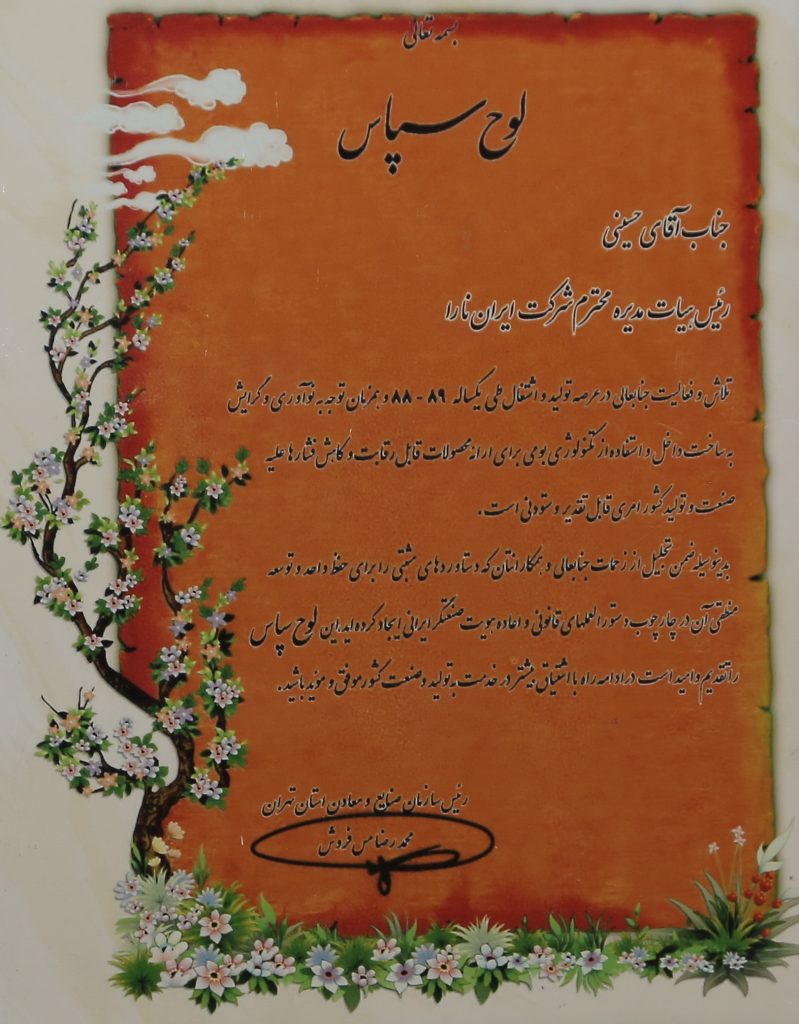 بسمه تعالی
لوح سپاس
جناب آقای حسینی
رئیس هیات مدیره محترم شرکت ایران نارا
تلاش و فعالیت جنابعالی در عرصه تولید و اشتغال طی یکساله ۸۹ - ۸۸ و همزمان توجه به نوآوری و گرایش
به ساخت داخل و استفاده از تکنولوژی بومی برای ارائه محصولات قابل رقابت و کاهش فشارها علیه
صنعت و تولید کشور امری قابل تقدیر و ستودنی است.
بدینوسیله ضمن تجلیل از زحمات جنابعالی و همکارانتان که دستاوردهای مثبتی را برای حفظ واحد و توسعه
منطقی آن در چارچوب دستورالعملهای قانونی و اعاده هویت صنعتگر ایرانی ایجاد کرده اید، این لوح سپاس
را تقدیم و امید است در ادامه راه با اشتیاق بیشتر در خدمت به تولید و صنعت کشور موفق و موید باشید.
رئیس سازمان صنایع و معادن استان تهران
محمدرضا مس فروش